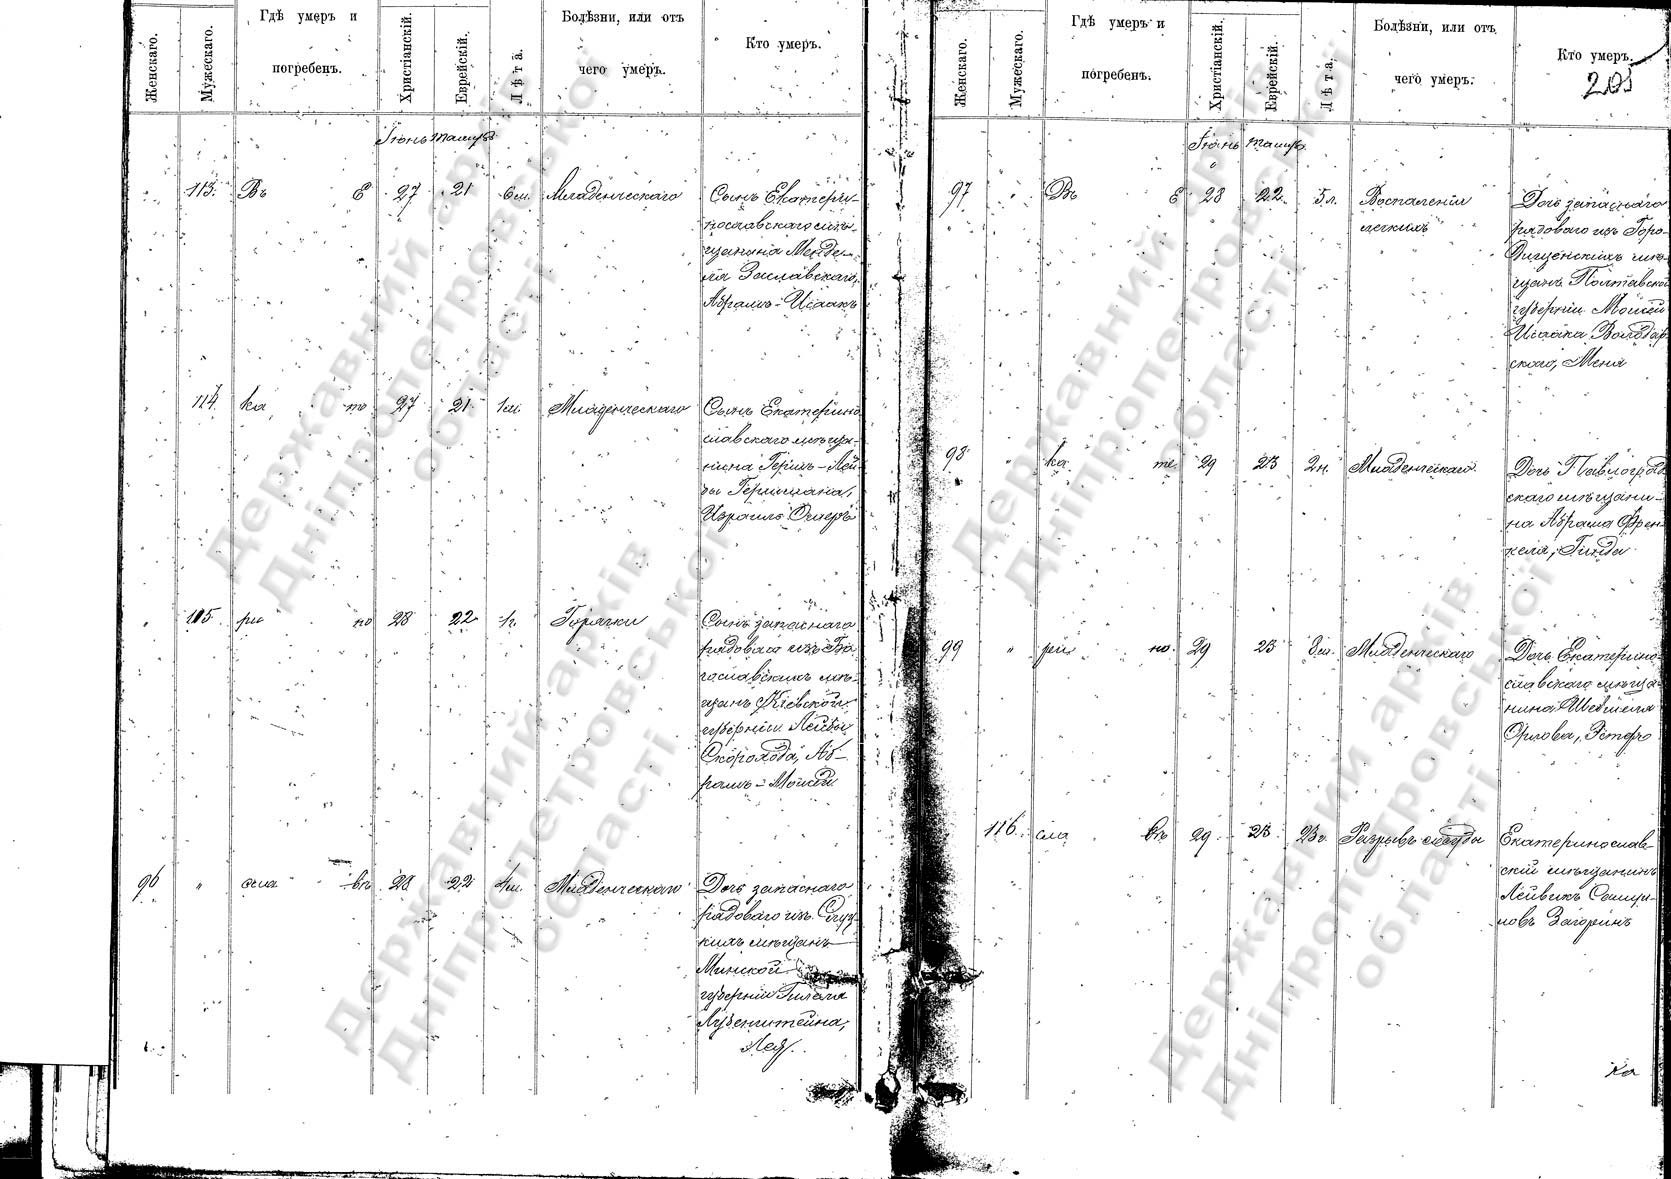 Женскаго.
Мужескаго.
Гдѣ умеръ и
погребенъ.
Христіанскій.
Еврейскій.
Лѣта.
Болѣзни, или отъ
чего умеръ.
Кто умеръ.
Іюнь Тамузъ
113. Въ Е 27 21 6 м. Младенческаго
Сынъ Екатери-
нославскаго мѣ-
щанина Менде-
ля Заславскаго,
Абрамъ-Исаакъ
114. ка те 27 21 1 м. Младенческаго
Сынъ Екатерино
славскаго мѣща-
нина Гершъ-Лей
бы
Израиль
115. ри но 28 22 1 г. Горячки
Сынъ запаснаго
рядоваго изъ Бо
гославскихъ мѣ-
щанъ Кіевской
губерніи Лейбы
Скорохода, Аб-
рамъ-Мойсей
96 " осла въ 28 22 4 м. Младенческаго
Дочь запаснаго
рядоваго изъ Слуц
кихъ мѣщанъ
Минской
губерніи
Лубенштейна,
Лея.
Женскаго.
Мужескаго.
Гдѣ умеръ и
погребенъ.
Христіанскій.
Еврейскій.
Лѣта.
Болѣзни, или отъ
чего умеръ.
Кто умеръ.
205
Іюнь Тамузъ
97 " Въ Е 28 22 5 л. Воспаленія
легкихъ
Дочь запаснаго
рядоваго изъ Горо-
дищенскихъ мѣ-
щанъ Полтавской
губерніи Мойсей
Исаака Володар-
скаго, Меня
98 " ка те 29 23 2 н. Младенческаго
Дочь Павлоград
скаго мѣщани-
на Абрама Френ
келя, Гинда
99 " ри но 29 23 8 м. Младенческаго
Дочь Екатерино-
славскаго мѣща-
нина
Орлова, Эстеръ
116. сла въ 29 23 23 г. Разрывъ
Екатеринослав-
скій мѣщанинъ
Лейвикъ
Загоринъ
ка
Державний архів
Дніпропетровської
області
Державний архів
Дніпропетровської
області
Державний архів
Дніпропетровської
області
Державний архів
Дніпропетровської
області